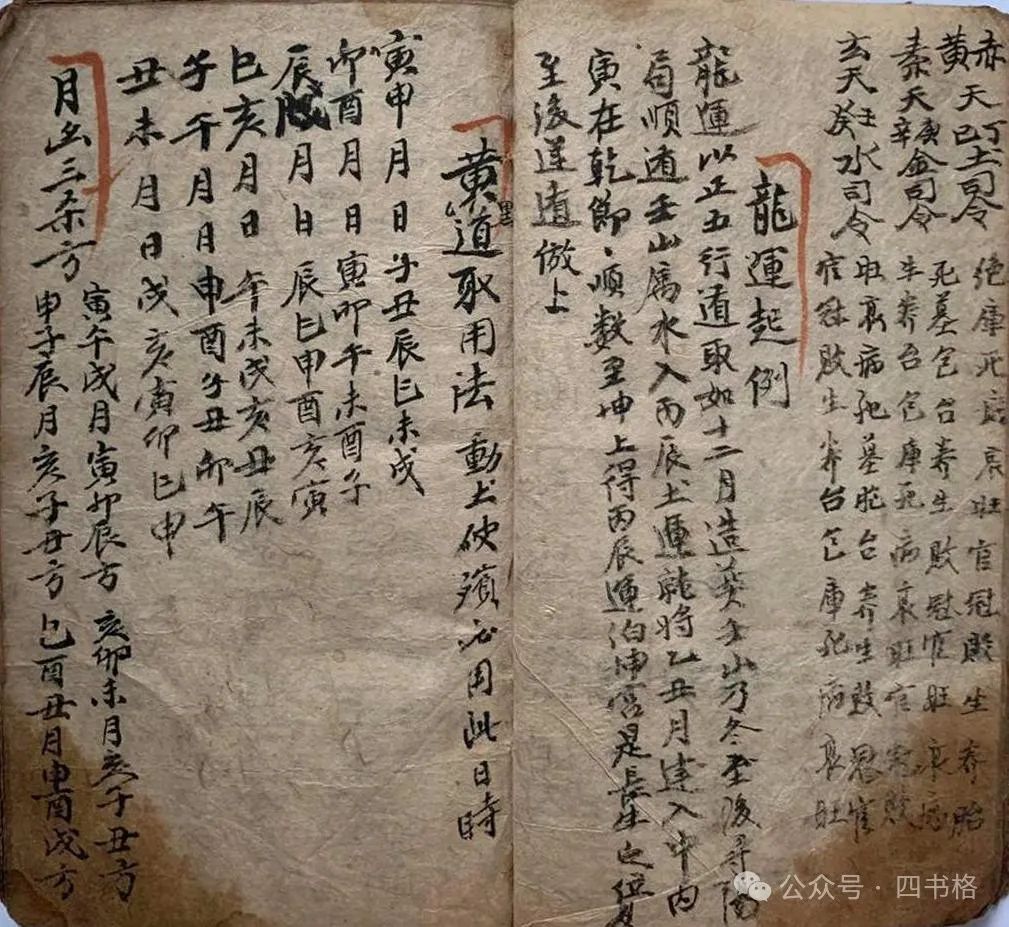 赤天丁
黄天己土司令 死墓包台养生敗冠官旺衰病
素天辛庚金司令
玄天癸壬水司令 官冠敗生养台包庫死病衰旺
龍運起例
龍運以正五行道取如十二月造葬壬山乃冬至後尋陽
局順遁壬山属水入丙辰土運就将乙丑月建入中内
寅在乾節、順数至坤上得丙辰運泊坤宫是長生之位夏
至後逆遁倣上
黄道取用法 動土破殯必用此日時
寅申月日子丑辰巳未戌
卯酉月日寅卯午未酉子
辰戌月日辰巳申酉亥寅
巳亥月日午未戌亥丑辰
子午月月申酉子丑卯午
丑未月日戌亥寅卯巳申
月凶三杀方
寅午戌月寅卯辰方 亥卯未月亥子丑方
申子辰月亥子丑方 巳酉丑月申酉戌方
公众号·四书格